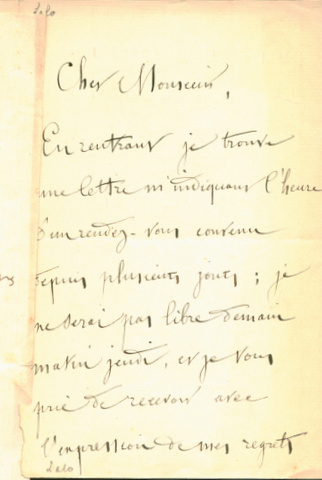 Lalo
Cher Monsieur,
En rentrant je trouve
une lettre m'indiquant l'heure
d'un rendez-vous convenu
depuis plusieurs jours ; je
ne serai pas libre demain
matin jeudi, et je vous
prie de recevoir avec
l'expression de mes regrets
Lalo